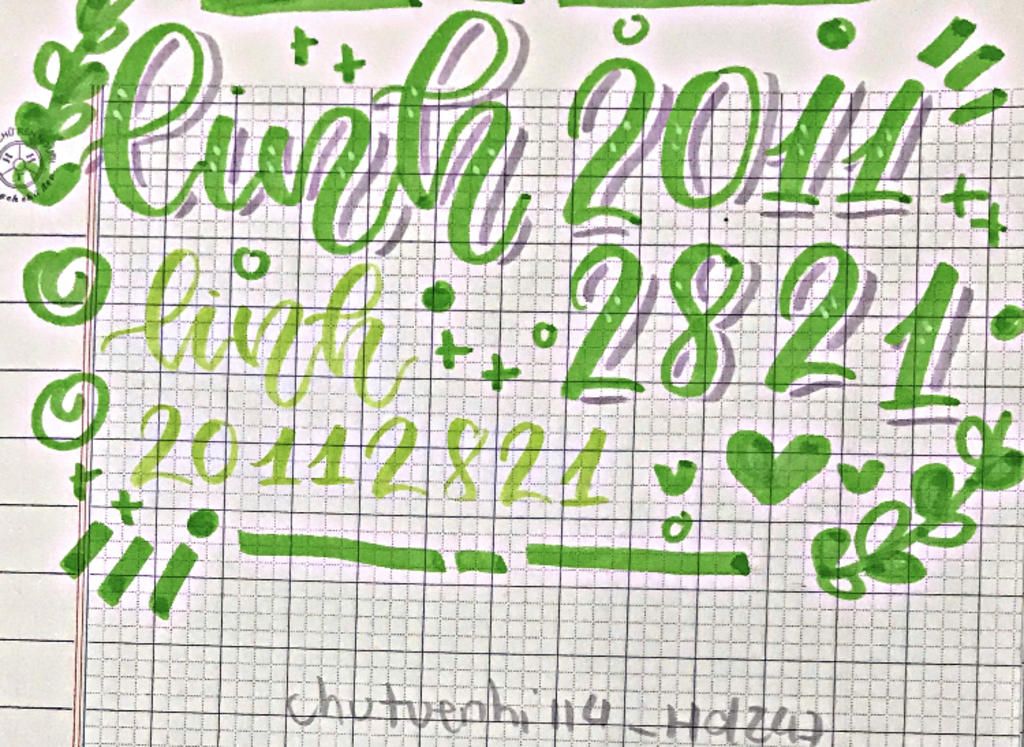 linh 2011
2821
linh
20112821